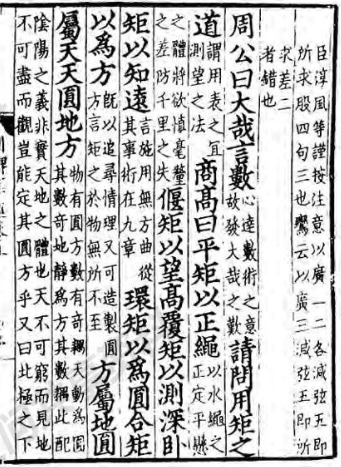 臣淳風等謹按注意以廣一二各減弦五即
所求股四句三也鸞云以廣三減弦五即所
求差二
者錯也
周公曰大哉言數
心達數術之意
故發大哉之歎
請問用矩之
道
謂用表之宜
測望之法
商高曰平矩以正繩
以水繩之
正定平懸
之體將欲慎毫釐
之差防千里之失
偃矩以望高覆矩以測深臥
矩以知遠
言施用無方曲從
其事術在九章
環矩以爲圓合矩
以爲方
既以追尋情理又可造製圓
方言矩之於物無所不至
方屬地圓
屬天天圓地方
物有圓方數有奇耦天動爲圓
其數奇地靜爲方其數耦此配
陰陽之義非實天地之體也天不可窮而見地
不可盡而觀豈能定其圓方乎又曰北極之下